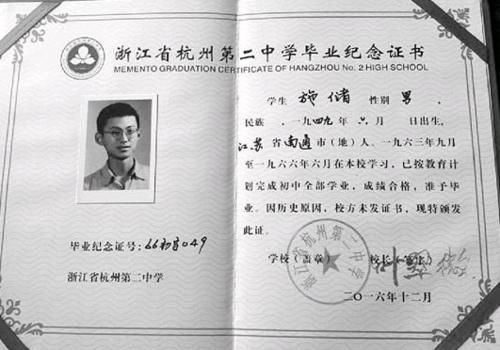 浙江省杭州第二中学毕业纪念证书
MEMENTO GRADUATION CERTIFICATE OF HANGZHOU No. 2 HIGH SCHOOL
学生 施储 性别 男 ,
民族 , 一九四九年六月 日出生,
江苏省南通市(地)人。一九六三年九月
至一九六六年六月在本校学习,已按教育计
划完成初中全部学业,成绩合格,准予毕
业。因历史原因,校方未发证书,现特颁发
此证。
毕业纪念证号:66初字049
浙江省杭州第二中学
学校(盖章) 校长(签名)
浙江省杭州第二中学
二〇一六年十二月